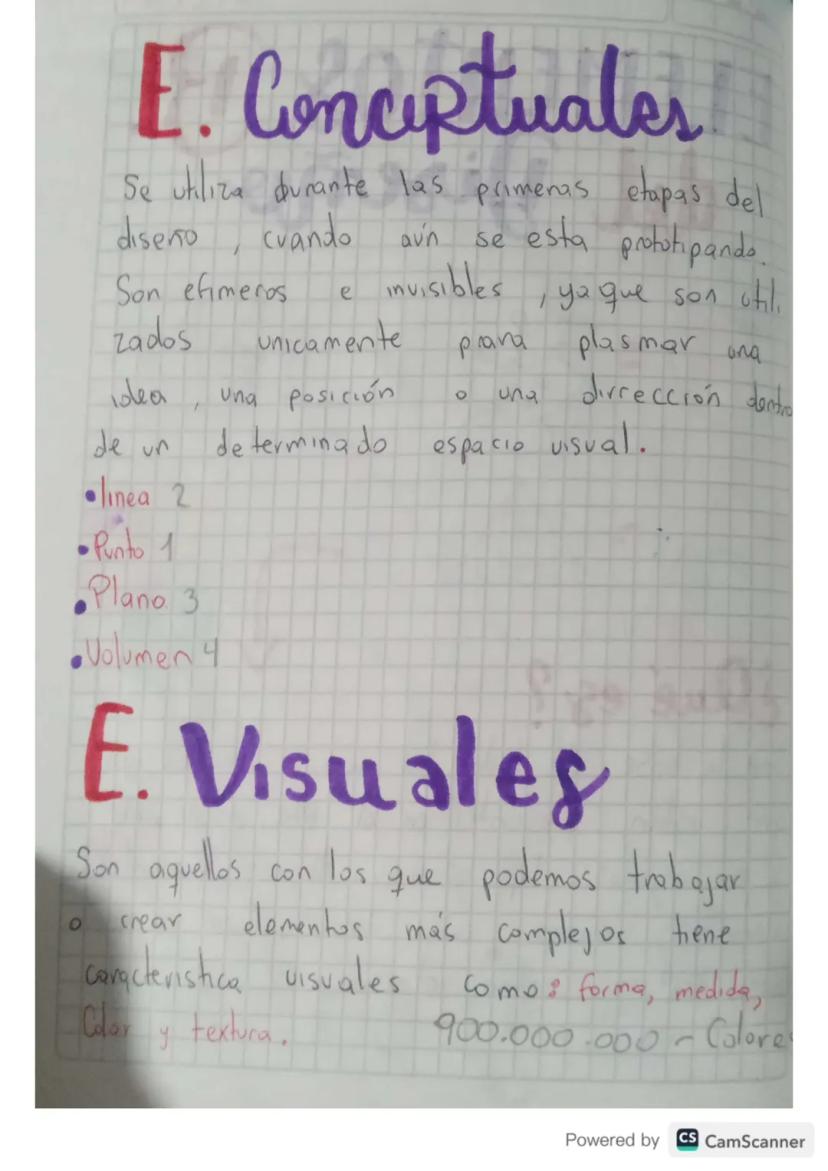 E. Conceptuales
Se utiliza durante las primeras etapas del
diseño, cuando aún se esta prototipando.
Son efimeros e invisibles, ya que son utili
zados unicamente para plasmar una
idea, una posición o una dirrección dentro
de un determinado espacio visual.
• linea 2
• Punto 1
• Plano 3
• Volumen 4
E. Visuales
Son aquellos con los que podemos trabajar
o crear elementos más complejos tiene
caracteristica visuales como: forma, medida,
Color y textura. 900.000.000 - Colore
Powered by CS CamScanner